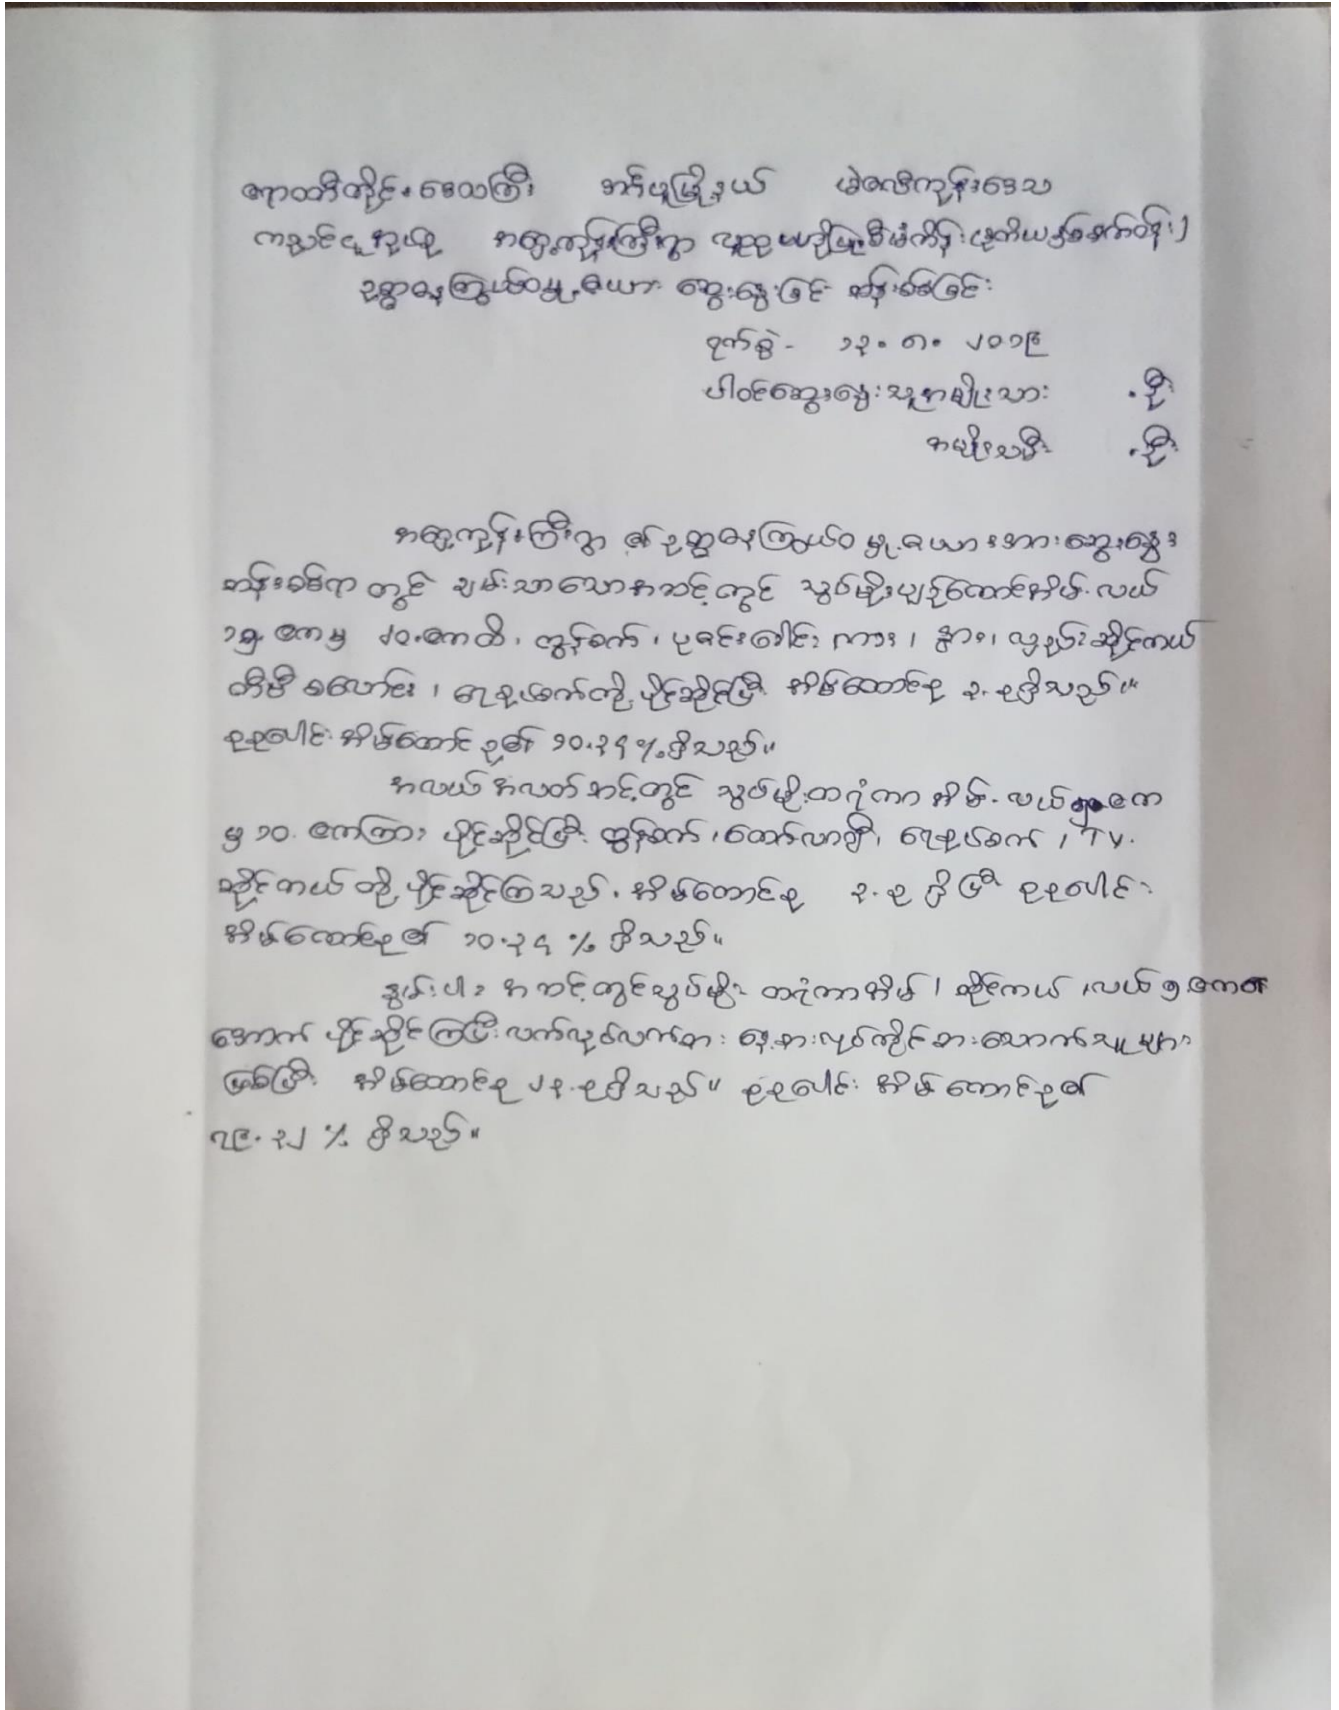 ဧရာဝတီတိုင်းဒေသကြီး အင်္ဂပူမြို့နယ် မဲဇလီကုန်းဒေသ
ကညင်ငူအုပ်စု အရှေ့ကုန်းကြီးရွာ လူထုဗဟိုပြုစီမံကိန်း (ဒုတိယနှစ်စက်ဝန်း)
ဥစ္စာဓနကြွယ်ဝမှု ဇယား ဆွေးနွေးခြင်း ဆန်းစစ်ခြင်း
ရက်စွဲ - ၁၃.၈.၂၀၁၉
ပါဝင်ဆွေးနွေးသူအမျိုးသား . ဦး
အမျိုးသမီး . ဦး
အရှေ့ကုန်းကြီးရွာ ၏ ဥစ္စာဓနကြွယ်ဝ မှု ဇယားအား ဆွေးနွေး
ဆန်းစစ်ရာ တွင် ချမ်းသာသောအဆင့်တွင် သွပ်မိုးပျဉ်ထောင်အိမ်၊ လယ်
၁၅ ဧကမှ ၂၀ ဧကထိ၊ ထွန်စက်၊ ပုခင်းခေါင်း ကား၊ နွား၊ လှည်း ဆိုင်ကယ်
တီဗီ စလောင်း၊ ရေစုပ်စက်တို့ ပိုင်ဆိုင်ပြီး အိမ်ထောင်စု ၃ စုရှိသည်။
စုစုပေါင်း အိမ်ထောင်စု၏ ၁၀.၃၄ % ရှိသည်။
အလယ်အလတ်ဆင့်တွင် သွပ်မိုးထရံကာ အိမ်၊ လယ် ၅ ဧက
မှ ၁၀ ဧကကြား ပိုင်ဆိုင်ပြီး ထွန်စက်၊ ထော်လာဂျီ၊ ရေစုပ်စက်၊ TV.
ဆိုင်ကယ် တို့ ပိုင်ဆိုင်ကြသည်။ အိမ်ထောင်စု ၃ စု ရှိပြီး စုစုပေါင်း
အိမ်ထောင်စု၏ ၁၀.၃၄ % ရှိသည်။
နွမ်းပါး အဆင့်တွင် သွပ်မိုး ထရံကာအိမ်၊ ဆိုင်ကယ်၊ လယ် ၅ ဧက၏
အောက် ပိုင်ဆိုင်ကြပြီး လက်လုပ်လက်စား နေ့စားလုပ်ကိုင်စားသောက်သူများ
ဖြစ်ပြီး အိမ်ထောင်စု ၂၃ စုရှိသည်။ စုစုပေါင်း အိမ်ထောင်စု၏
၇၉.၃၂ % ရှိသည်။